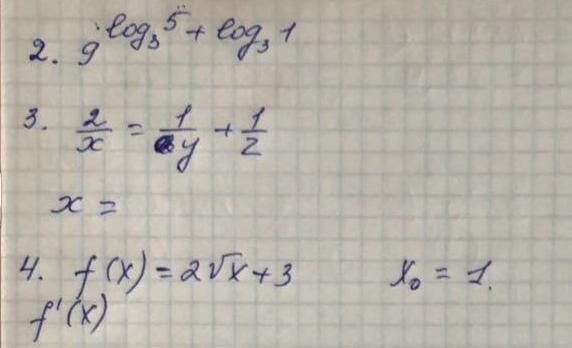 2. 9^(log₃5 + log₃1)
3. 2/x = 1/y + 1/z
x =
4. f(x) = 2√x + 3    x₀ = 1.
f'(x)